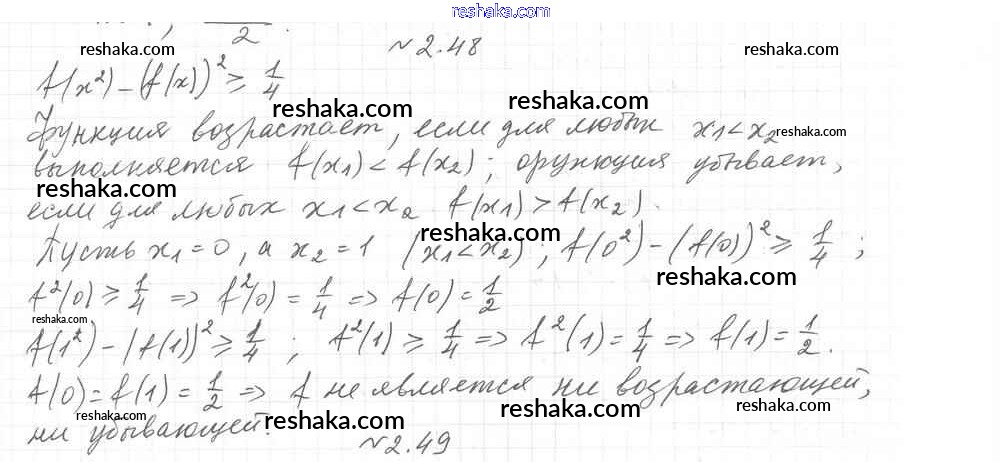 www.reshaka.com
2
reshaka.com №2.48 reshaka.com
f(x²) - (f(x))² ≥ 1/4
reshaka.com reshaka.com
Функция возрастает, если для любых x₁ < x₂ reshaka.com
выполняется f(x₁) < f(x₂); функция убывает,
reshaka.com
если для любых x₁ < x₂ f(x₁) > f(x₂).
reshaka.com
Пусть x₁ = 0, а x₂ = 1 (x₁ < x₂); f(0²) - (f(0))² ≥ 1/4;
reshaka.com
f²(0) ≥ 1/4 => f²(0) = 1/4 => f(0) = 1/2
reshaka.com
f(1²) - (f(1))² ≥ 1/4; f²(1) ≥ 1/4 => f²(1) = 1/4 => f(1) = 1/2.
reshaka.com reshaka.com
f(0) = f(1) = 1/2 => f не является ни возрастающей,
reshaka.com reshaka.com reshaka.com
ни убывающей.
№2.49